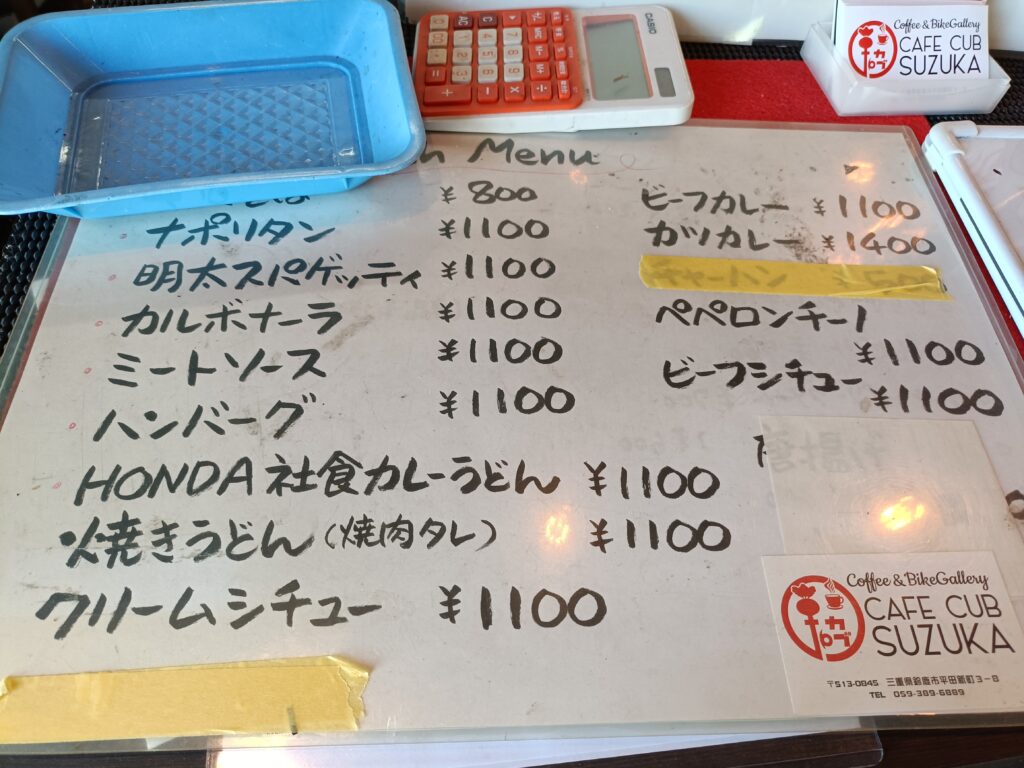 Menu
¥800
ナポリタン ¥1100
明太スパゲッティ ¥1100
カルボナーラ ¥1100
ミートソース ¥1100
ハンバーグ ¥1100
HONDA社食カレーうどん ¥1100
焼きうどん(焼肉タレ) ¥1100
クリームシチュー ¥1100
ビーフカレー ¥1100
カツカレー ¥1400
チャーハン
ペペロンチーノ
¥1100
ビーフシチュー
¥1100
Coffee & BikeGallery
カブ
CAFE CUB
SUZUKA
〒513-0845 三重県鈴鹿市平田新町3-8
TEL 059-389-6889
Coffee & BikeGallery
カブ
CAFE CUB
SUZUKA
CASIO
AC
C